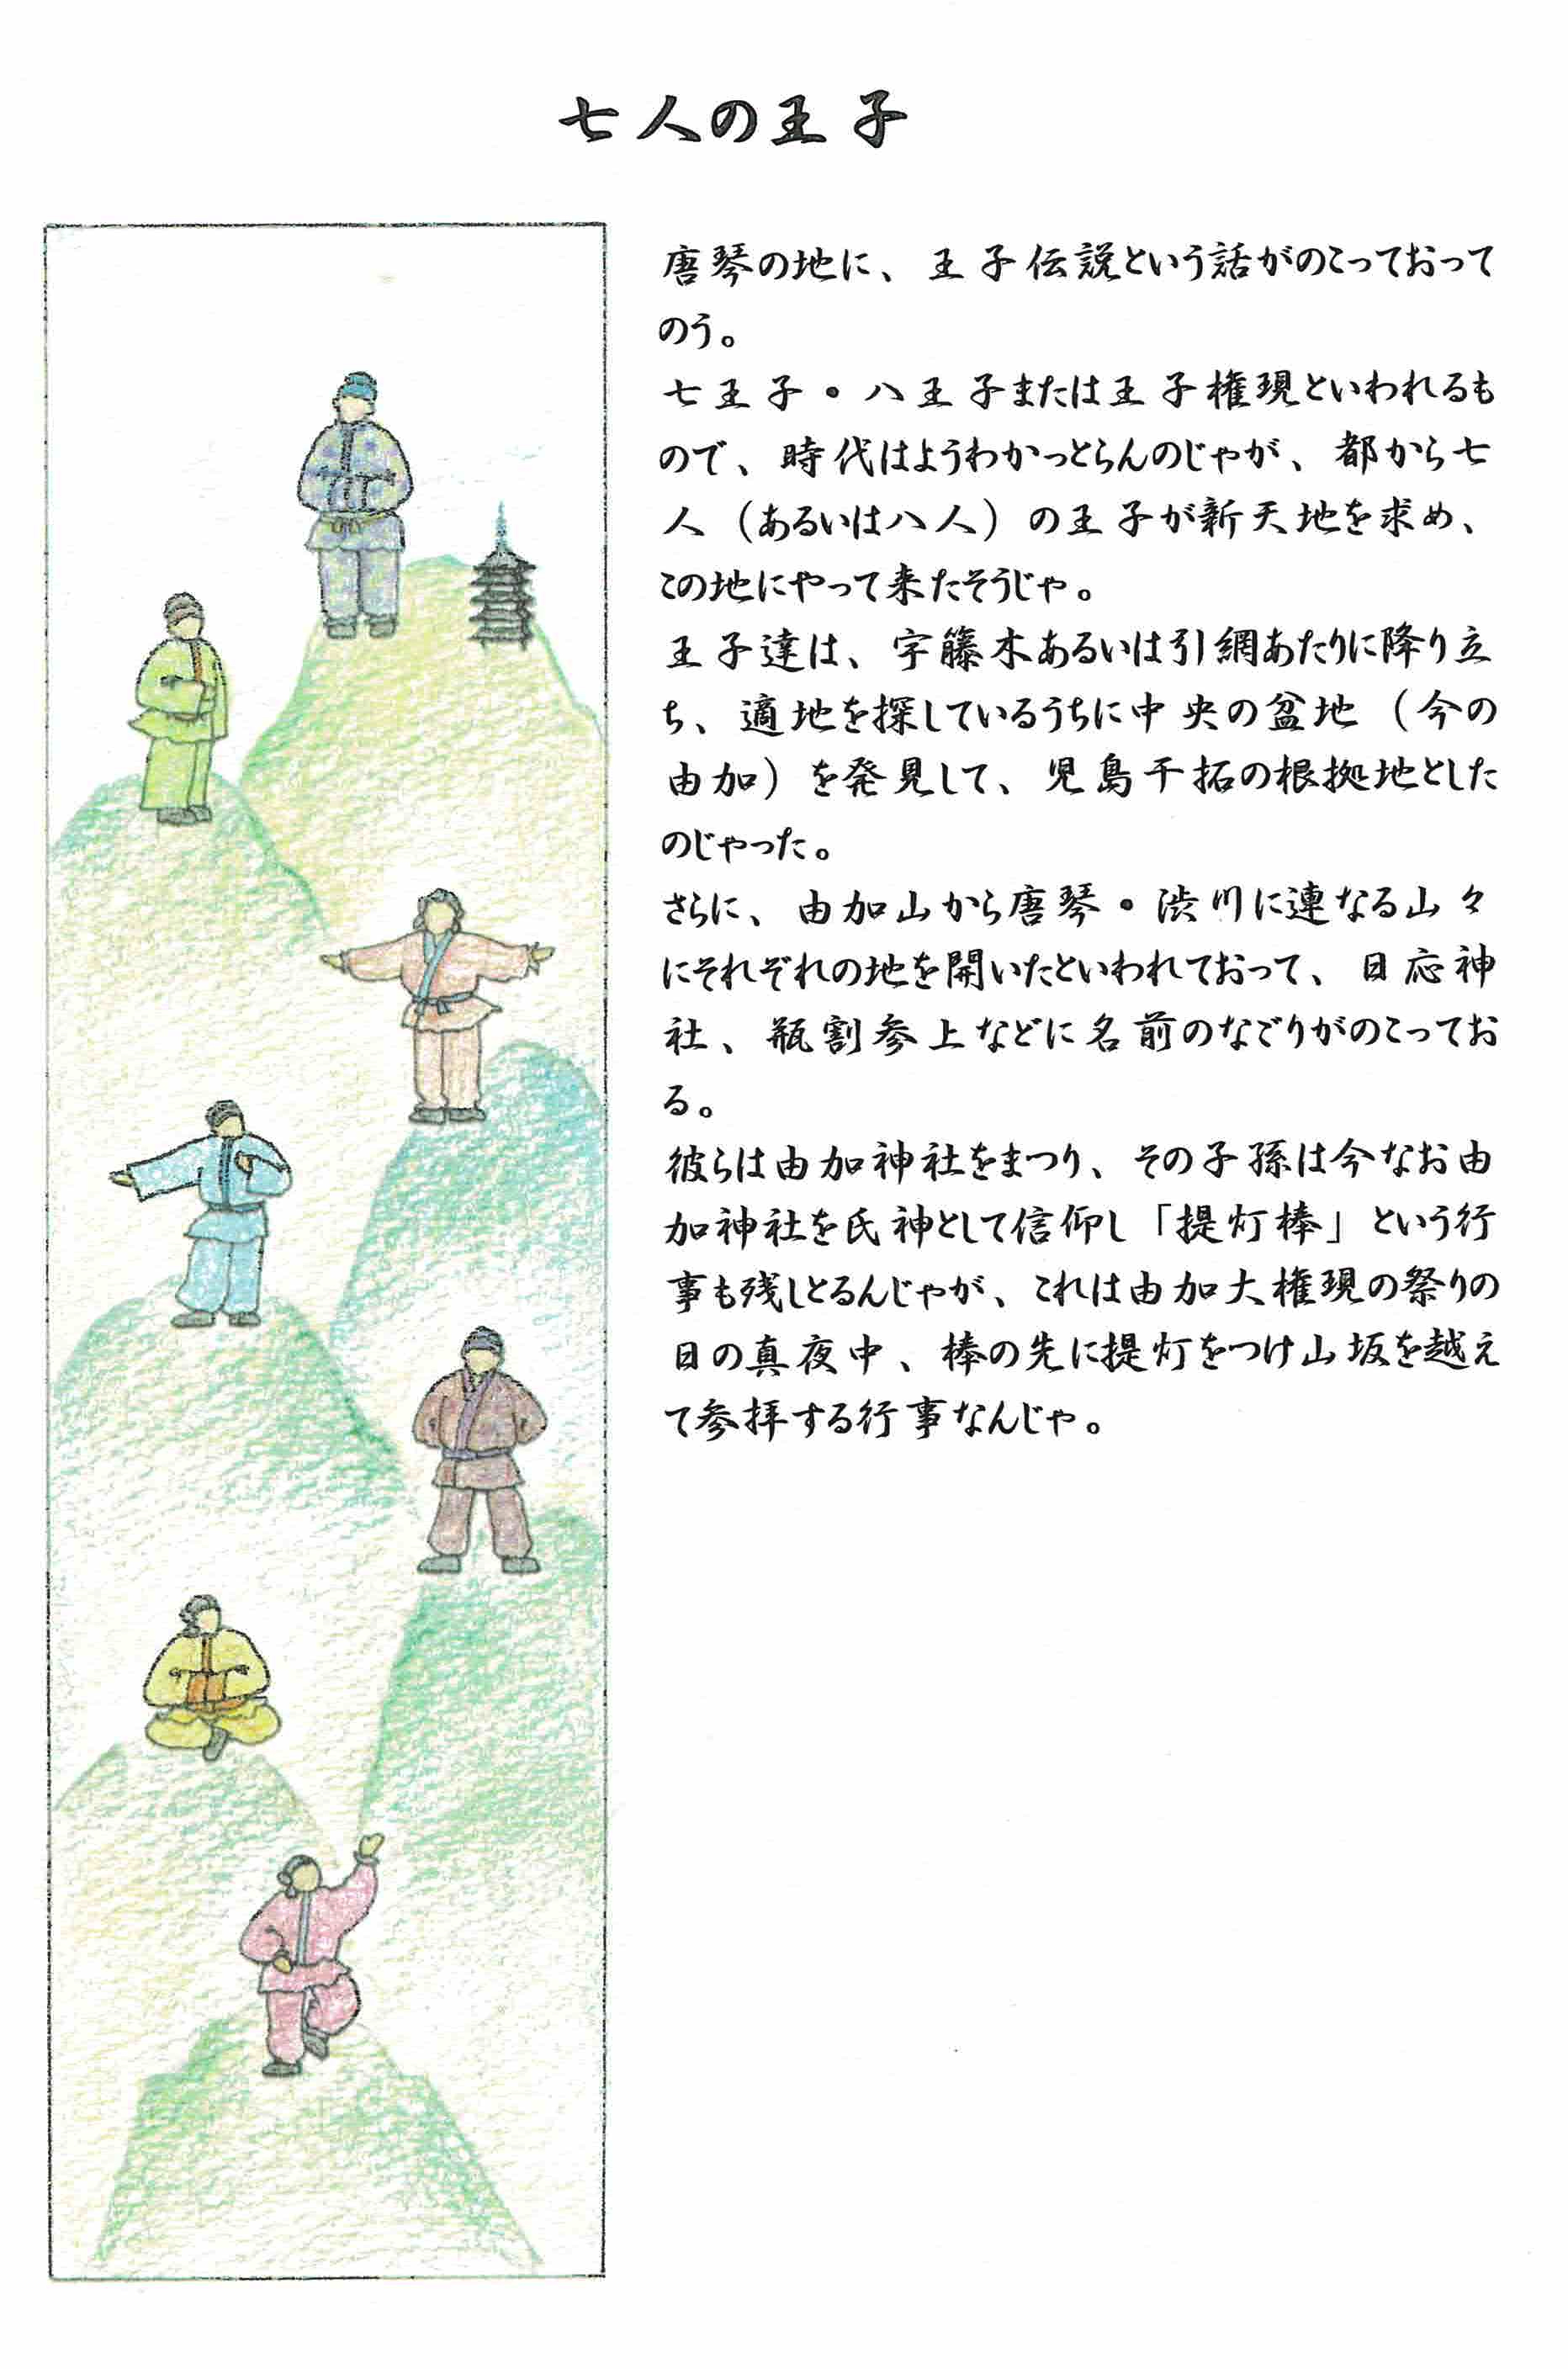 七人の王子
唐琴の地に、王子伝説という話がのこっておって
のう。
七王子・八王子または王子権現といわれるも
ので、時代はようわかっとらんのじゃが、都から七
人（あるいは八人）の王子が新天地を求め、
この地にやって来たそうじゃ。
王子達は、宇籐木あるいは引網あたりに降り立
ち、適地を探しているうちに中央の盆地（今の
由加）を発見して、児島干拓の根拠地とした
のじゃった。
さらに、由加山から唐琴・渋川に連なる山々
にそれぞれの地を開いたといわれておって、日応神
社、瓶割参上などに名前のなごりがのこってお
る。
彼らは由加神社をまつり、その子孫は今なお由
加神社を氏神として信仰し「提灯棒」という行
事も残しとるんじゃが、これは由加大権現の祭りの
日の真夜中、棒の先に提灯をつけ山坂を越え
て参拝する行事なんじゃ。